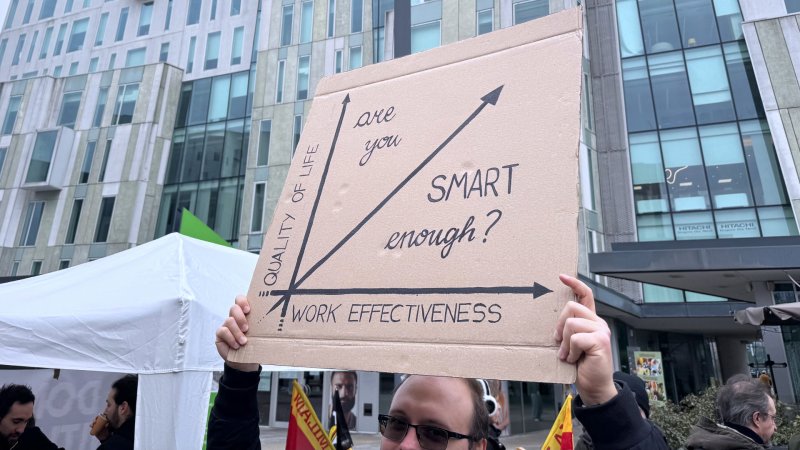 are
you
SMART
enough?
QUALITY OF LIFE
WORK EFFECTIVENESS
HITACHI
HITACHI